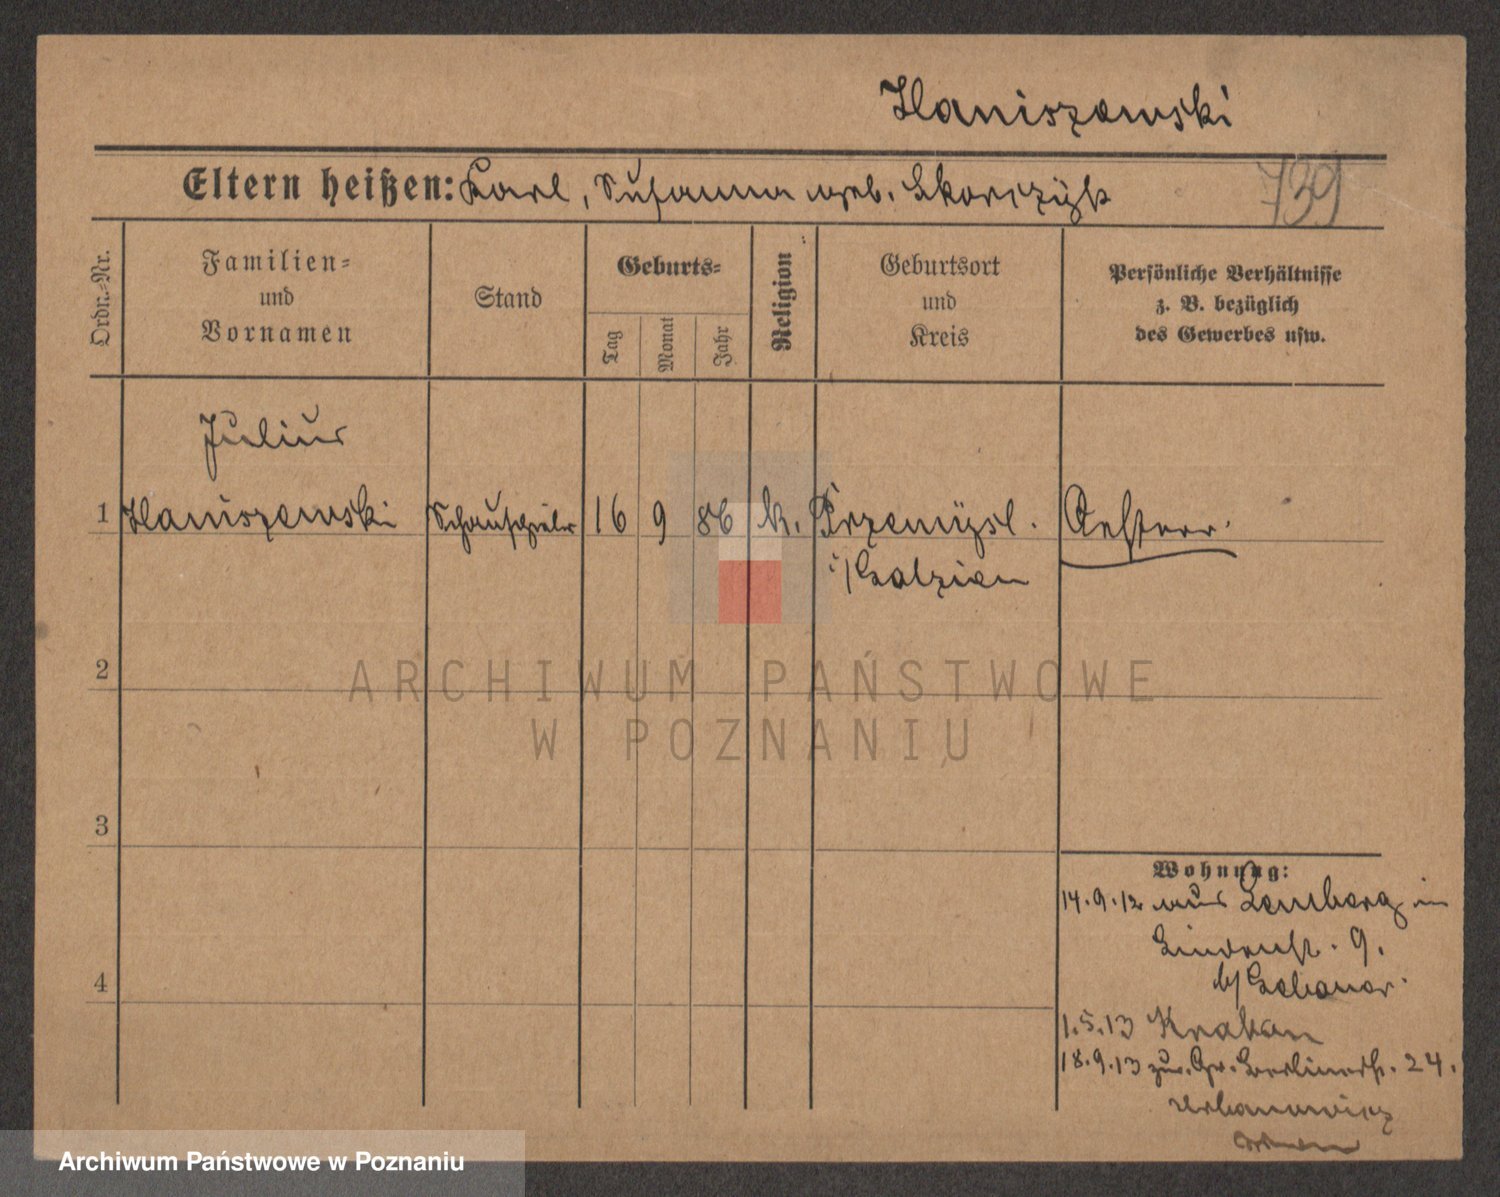 Haniszewski
Eltern heißen: Karl, Susanna geb. Skorczyk
739
Ordn.-Nr.
Familien-
und
Vornamen
Stand
Geburts-
Tag
Monat
Jahr
Religion
Geburtsort
und
Kreis
Persönliche Verhältnisse
z. B. bezüglich
des Gewerbes usw.
Julius
1 Haniszewski Schauspieler 16 9 86 k. Przemysl. Oesterr.
i/Galzien
2
3
4
ARCHIWUM PAŃSTWOWE
W POZNANIU
Wohnung:
14.9.12 aus Lemberg in
Lindenstr. 9.
b/
1.5.13 Krakau
18.9.13 zur. Gr. Berlinerstr. 24.
Urbanowicz
Archiwum Państwowe w Poznaniu